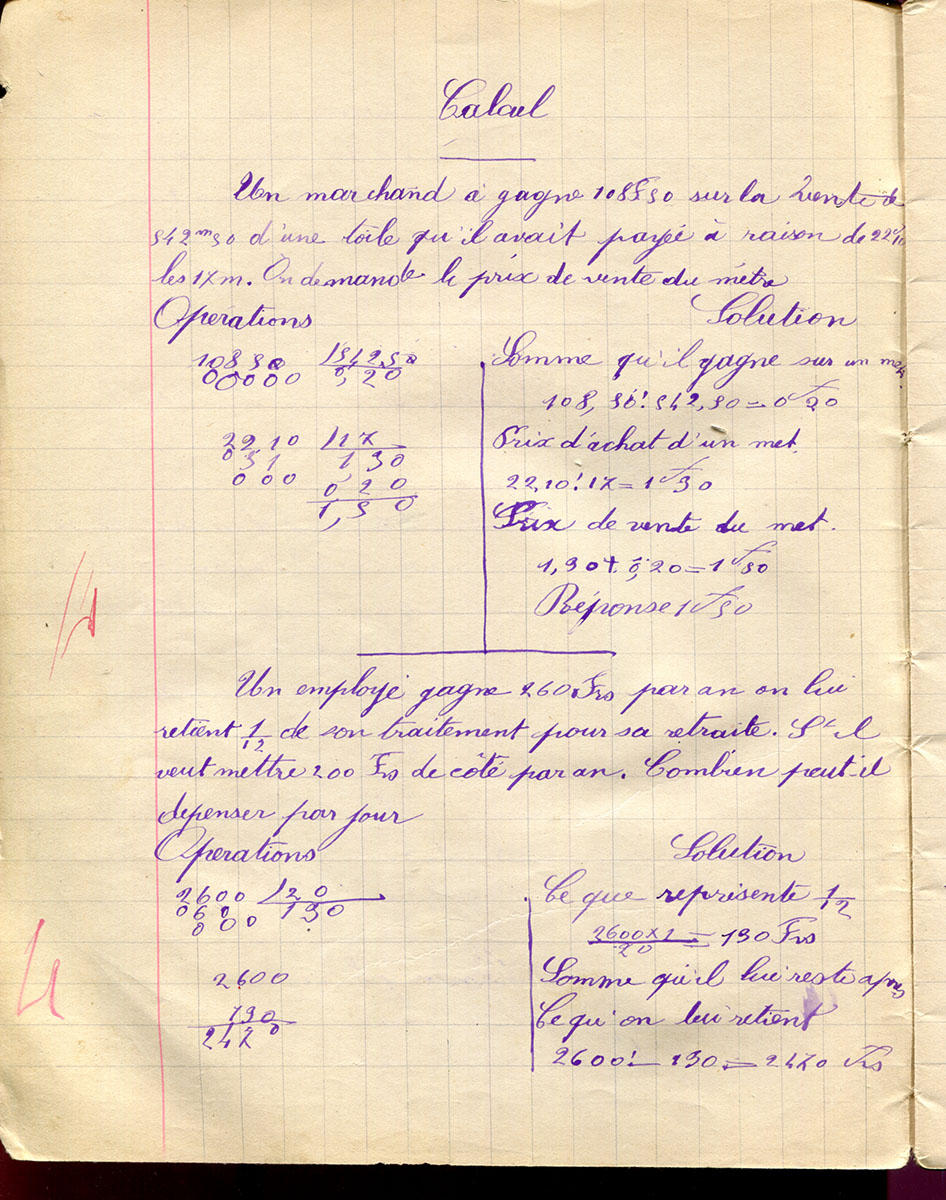 Calcul
Un marchand à gagne 108F50 sur la vente de
542m50 d'une toile qu'il avait payée à raison de 22f10
les 17m. On demande le prix de vente du métre
Opérations
Solution
10850 542,50
00000 0,20
Somme qu'il gagne sur un met
108,50 : 542,50 = 0f20
2210 17
051 1,30
000 0 20
1,50
Prix d'achat d'un met
22,10 : 17 = 1f30
Prix de vente du met.
1,30 + 0,20 = 1f50
Réponse 1f50
Un employé gagne 260 Frs par an on lui
retient 1/12 de son traitement pour sa retraite. S'il
veut mettre 200 Frs de côté par an. Combien peut-il
depenser par jour
Opérations
Solution
2600 20
060 130
000
Ce que représente 1/12
2600x1/20 = 130 Frs
2600
130
2470
Somme qu'il lui reste apres
Ce qu'on lui retient
2600 - 130 = 2470 Frs